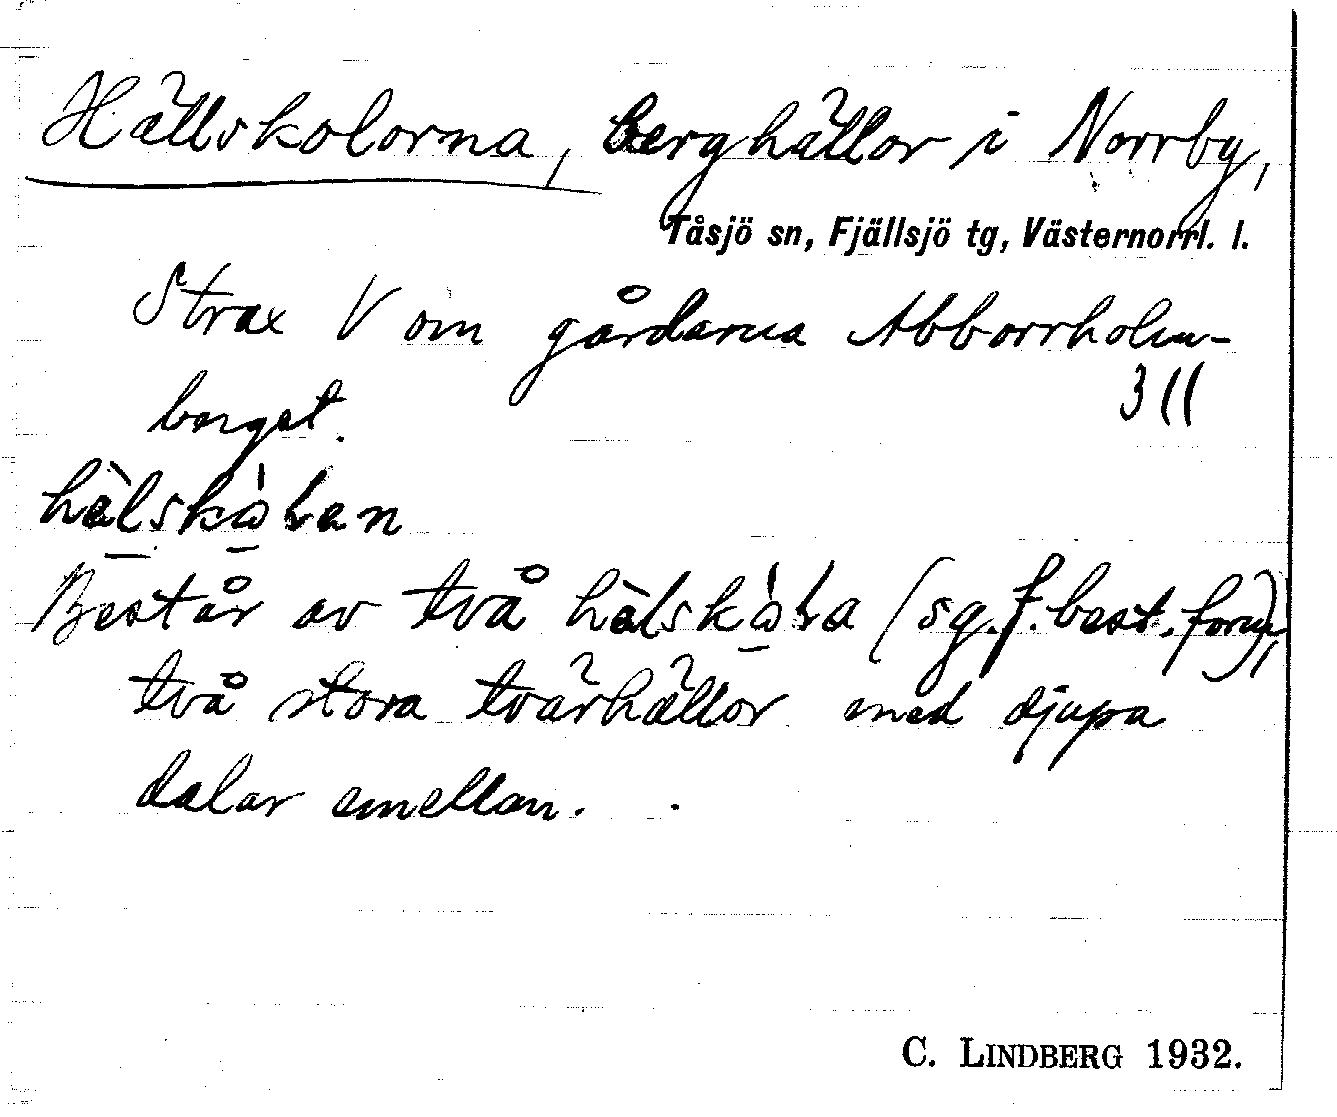 Hällskolorna, berghällor i Norrby,
Tåsjö sn, Fjällsjö tg, Västernorrl. l.
Strax V om gårdarna Abborrholm-
berget.
311
Består av två (sg. f. best. form),
två stora tvärhällor med djupa
dalar emellan.
C. LINDBERG 1932.